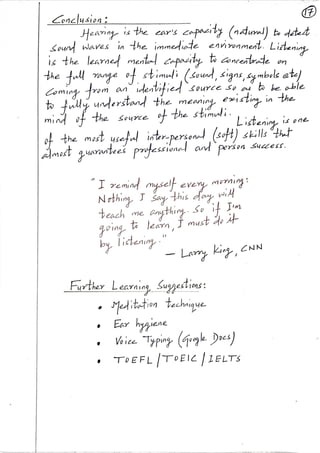 17
Conclusion:
Hearing is the ear's capacity (natural) to detect
sound waves in the immediate environment. Listening
is the learned mental capacity to concentrate on
the full range of stimuli (sound, signs, symbols etc)
coming from an identified source so as to be able
to fully understand the meaning existing in the
mind of the source of the stimuli.
Listening is one
of the most useful inter-personal (soft) skills that
almost guarantees professional and person success.
"I remind myself every morning:
Nothing I say this day will
teach me anything. So if I'm
going to learn, I must do it
by listening."
— Larry King, CNN
Further Learning Suggestions:
• Meditation technique
• Ear hygiene
• Voice Typing (Google Docs)
• TOEFL / TOEIC / IELTS